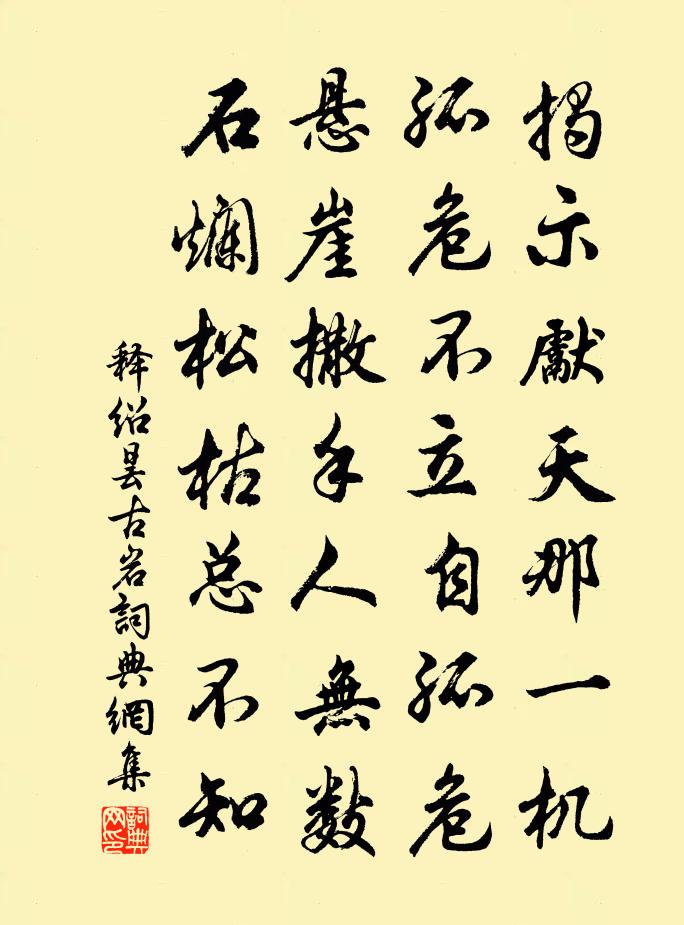 揭示獻天那一机
孤危不立自孤危
悬崖撒手人無数
石爛松枯总不知
释绍昙古岩詞典網集
詞典网印